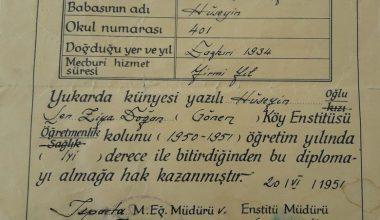 Babasının adı Hüseyin
Okul numarası 401
Doğduğu yer ve yıl 1934
Mecburi hizmet süresi Yirmi Yıl
Yukarda künyesi yazılı Hüseyin Oğlu kızı
Şen Ziya Doğan (Gönen) Köy Enstitüsü
Öğretmenlik Sağlık kolunu (1950-1951) öğretim yılında
(iyi) derece ile bitirdiğinden bu diploma-
yı almağa hak kazanmıştır. 20 VI 1951
Isparta M. Eğ. Müdürü v. Enstitü Müdürü